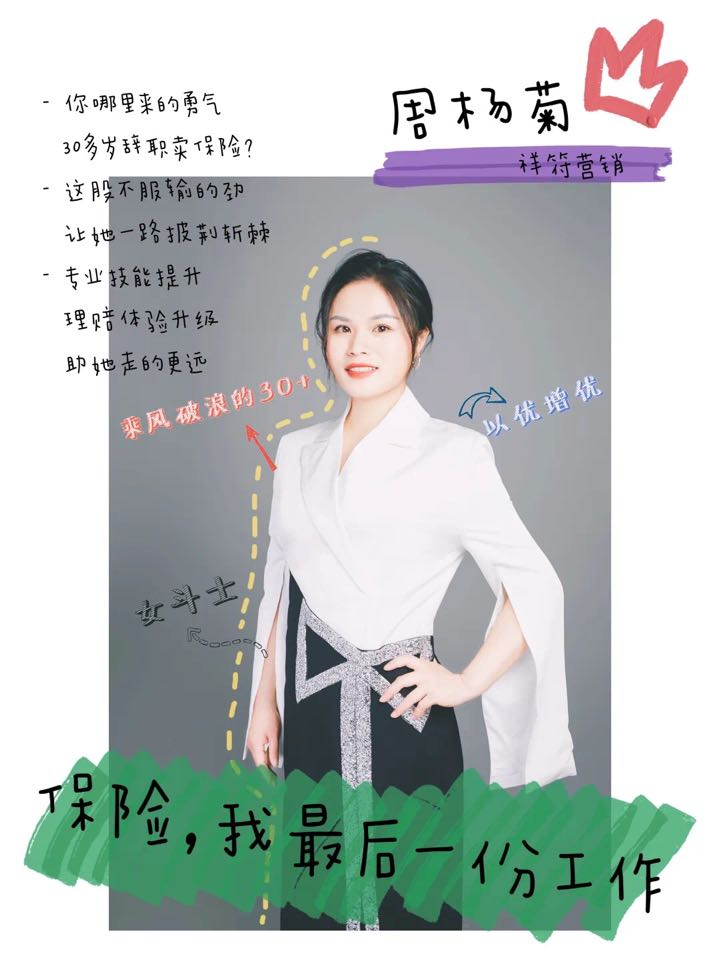 周杨菊
祥符营销
- 你哪里来的勇气
30多岁辞职卖保险?
- 这股不服输的劲
让她一路披荆斩棘
- 专业技能提升
理赔体验升级
助她走的更远
乘风破浪的30+
以优增优
女斗士
保险,我最后一份工作